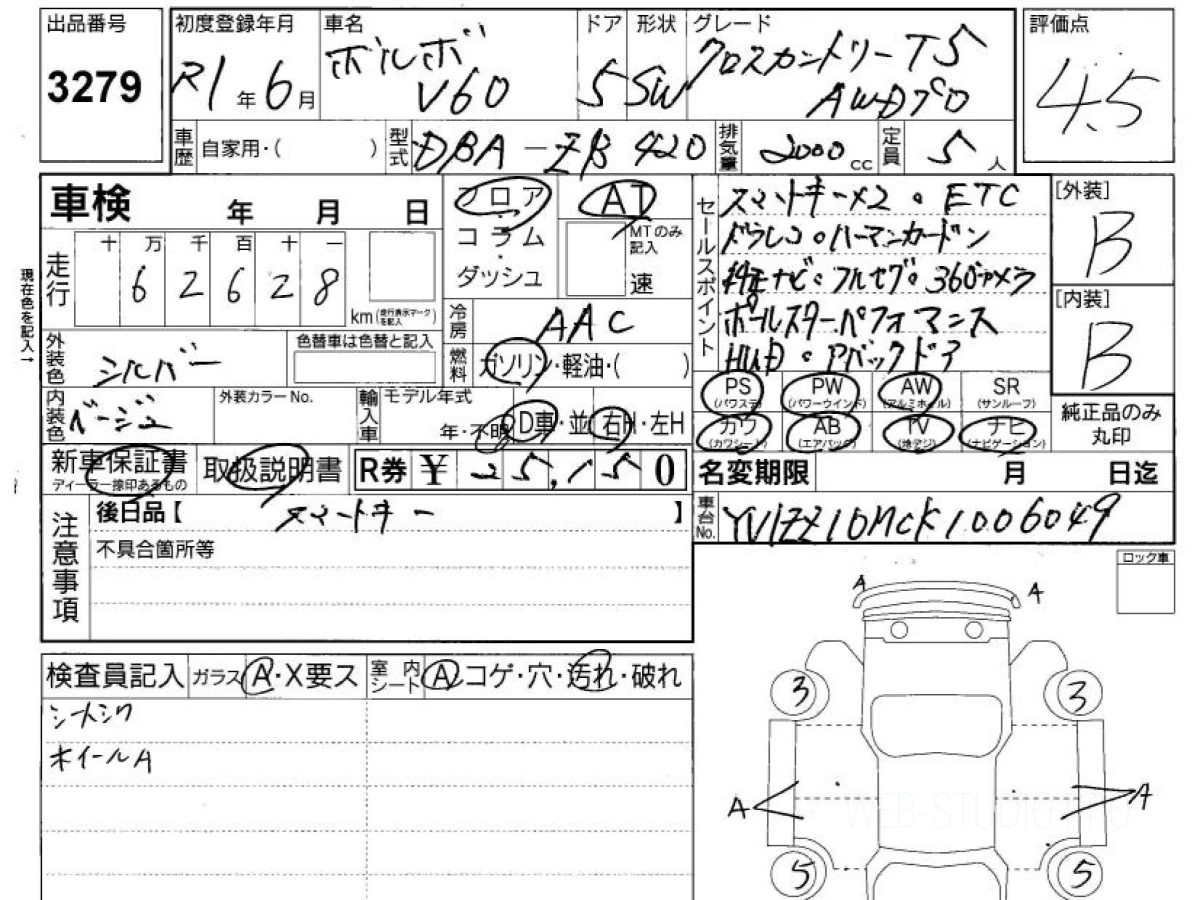 出品番号 初度登録年月 車名 ドア 形状 グレード 評価点
3279 R1年6月 ボルボ V60 5 SW クロスカントリー T5 AWDプロ 4.5
車歴 自家用・( ) 型式 DBA-ZB420 排気量 2000cc 定員 5人
車検 年 月 日
フロア・コラム ダッシュ
AT MTのみ記入 速
セールスポイント
スマートキー×2。ETC
ドラレコ。ハーマンカードン
純正ナビ。フルセグ。360°カメラ
ポールスターパフォーマンス
HUD。Pバックドア
[外装] B
[内装] B
現在色を記入→
走行 十 万 千 百 十 一
6 2 6 2 8 km(走行表示マークを記入)
冷房 AAC
燃料 ガソリン・軽油・( )
外装色 シルバー 色替車は色替と記入
内装色 ベージュ 外装カラーNo. 輸入車 モデル年式 年・不明 D車・並 右H・左H
PS (パワステ) PW (パワーウインド) AW (アルミホイル) SR (サンルーフ)
カワ (カワシート) AB (エアバック) TV (地デジ) ナビ (ナビゲーション)
純正品のみ丸印
新車保証書 ディーラー捺印あるもの 取扱説明書 R券 ¥ 25,150
名変期限 月 日迄
注意事項
後日品【 スマートキー 】
車台No. YV1ZZ10MCK1006049
不具合箇所等
ロック車
検査員記入 ガラス A・X要ス 室内シート A コゲ・穴・汚れ・破れ
シートシワ
ホイールA
A A
3 3
A A
WEB-STUDIO
5 5